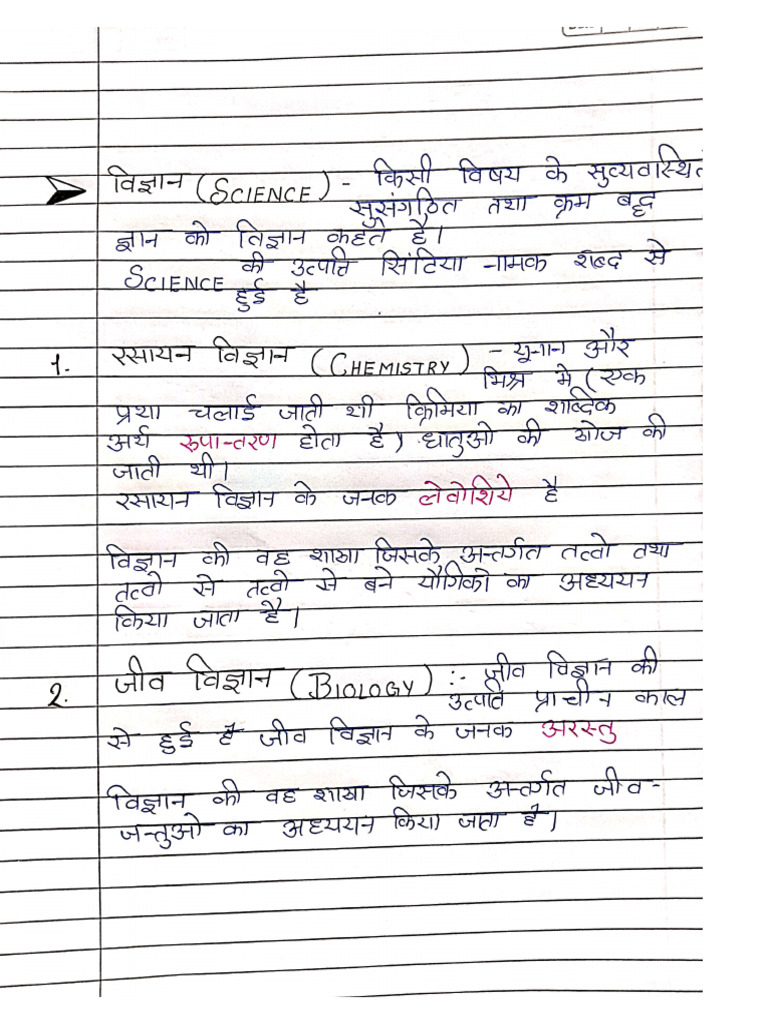 विज्ञान (SCIENCE) - किसी विषय के सुव्यवास्थित
सुसंगठित तथा क्रम बद्ध
ज्ञान को विज्ञान कहते है।
SCIENCE की उत्पत्ति सिंटिया नामक शब्द से
हुई है
1. रसायन विज्ञान (CHEMISTRY) - यूनान और
मिश्र मे (एक
प्रथा चलाई जाती थी क्रिमिया का शाब्दिक
अर्थ रूपान्तरण होता है) धातुओ की खोज की
जाती थी।
रसायन विज्ञान के जनक लेवोशिये है
विज्ञान की वह शाखा जिसके अन्तर्गत तत्वो तथा
तत्वो से तत्वो से बने यौगिको का अध्ययन
किया जाता है।
2. जीव विज्ञान (BIOLOGY) :- जीव विज्ञान की
उत्पति प्राचीन काल
से हुई है जीव विज्ञान के जनक अरस्तु
विज्ञान की वह शाखा जिसके अन्तर्गत जीव -
जन्तुओ का अध्ययन किया जाता है।